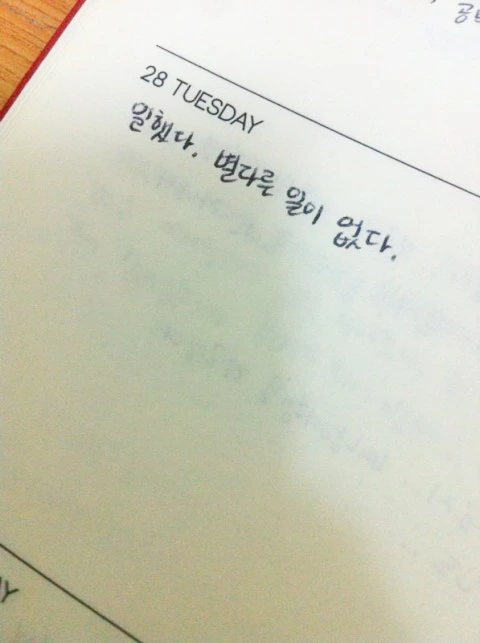 28 TUESDAY
일했다. 별다른 일이 없다.